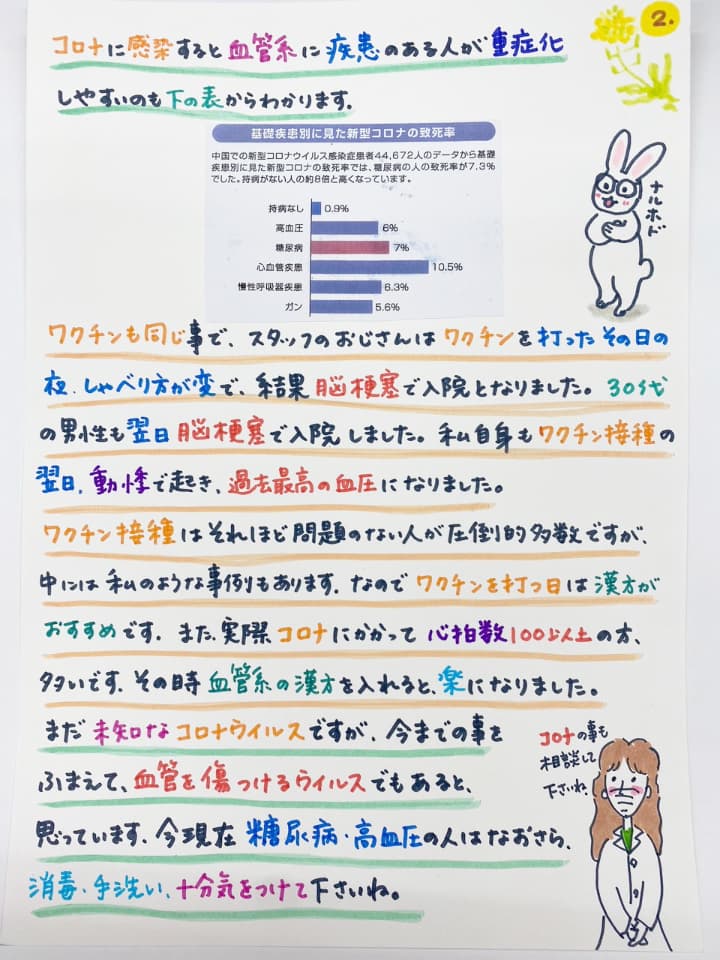 2.
コロナに感染すると血管系に疾患のある人が重症化
しやすいのも下の表からわかります.
基礎疾患別に見た新型コロナの致死率
中国での新型コロナウイルス感染症患者44,672人のデータから基礎
疾患別に見た新型コロナの致死率では、糖尿病の人の致死率が7.3%
でした。持病がない人の約8倍と高くなっています。
持病なし 0.9%
高血圧 6%
糖尿病 7%
心血管疾患 10.5%
慢性呼吸器疾患 6.3%
ガン 5.6%
ナルホド
ワクチンも同じ事で、スタッフのおじさんはワクチンを打ったその日の
夜、しゃべり方が変で、結果脳梗塞で入院となりました。30代
の男性も翌日脳梗塞で入院しました。私自身もワクチン接種の
翌日、動悸で起き、過去最高の血圧になりました。
ワクチン接種はそれほど問題のない人が圧倒的多数ですが、
中には私のような事例もあります. なのでワクチンを打つ日は漢方が
おすすめです. また、実際コロナにかかって心拍数100以上の方、
多いです. その時血管系の漢方を入れると、楽になりました。
まだ未知なコロナウイルスですが、今までの事を
ふまえて、血管を傷つけるウイルスでもあると、
思っています. 今現在糖尿病・高血圧の人はなおさら、
消毒・手洗い、十分気をつけて下さいね。
コロナの事も
相談して
下さいね.